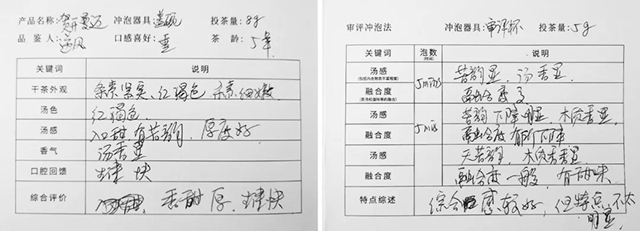 产品名称: 贺开曼迈 冲泡器具: 盖碗 投茶量: 8g
品鉴人: 口感喜好: 重 茶龄: 5年
关键词 说明
干茶外观 条索紧实、红褐色 条索细嫩
汤色 红褐色.
汤感 入口甜 有苦韵, 厚度好
香气 汤香显
口腔回馈 生津 快
综合评价 香甜 厚. 生津快
审评冲泡法 冲泡器具: 审评杯 投茶量: 5g
关键词 泡数时间 说明
汤感 苦韵显, 汤香显.
融合度 5min 融合度好
汤感 苦韵下降明显, 木质香显.
融合度 5min 融合度有所下降
汤感 无苦韵, 木质香显.
融合度 融合度一般, 有甜味
特点综述 综合度较好, 但特点不太明显.